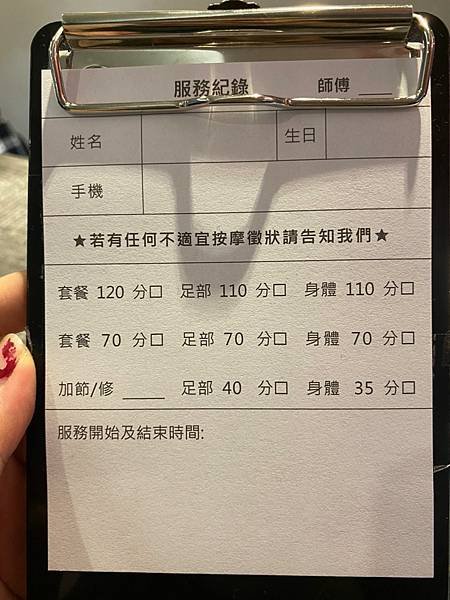 服務紀錄 師傅 ____
姓名 生日
手機
★若有任何不適宜按摩徵狀請告知我們★
套餐 120 分口 足部 110 分口 身體 110 分口
套餐 70 分口 足部 70 分口 身體 70 分口
加節/修 ____ 足部 40 分口 身體 35 分口
服務開始及結束時間: